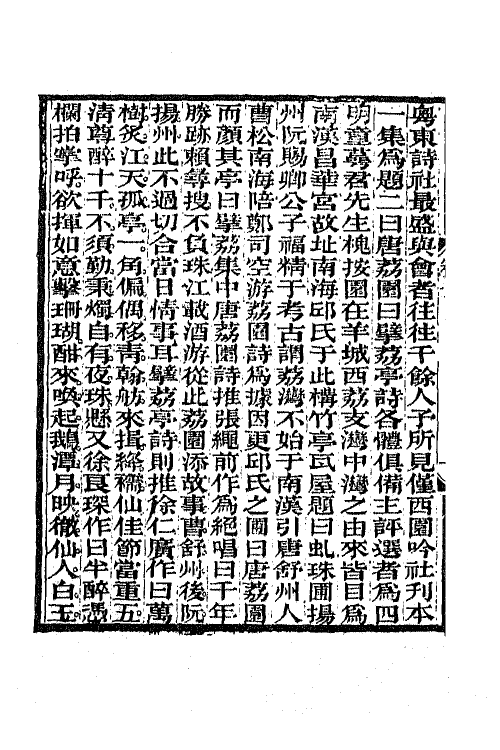 粵東詩社最盛與會者往往千餘人子所見僅西園吟社刊本
一集爲題二曰唐荔園曰擘荔亭詩各體俱備主評選者爲四
明童萼君先生槐按園在羊城西荔支灣中灣之由來皆目爲
南漢昌華宮故址南海邱氏于此構竹亭瓦屋題曰虬珠圃揚
州阮賜卿公子福精于考古謂荔灣不始于南漢引唐舒州人
曹松南海陪鄭司空游荔園詩爲據因更邱氏之圃曰唐荔園
而顏其亭曰擘荔集中唐荔園詩推張繩前作爲絕唱曰千年
勝跡賴尋搜不負珠江載酒游從此荔園添故事曹舒州後阮
揚州此不過切合當日情事耳擘荔亭詩則推徐仁廣作曰萬
樹炙江天孤亭一角偏偶移青翰舫來揖絳襦仙佳節當重五
清尊醉十千不須勤秉燭自有夜珠懸又徐良琛作曰半醉憑
欄拍掌呼欲揮如意擊珊瑚酣來喚起鵝潭月映徹仙人白玉